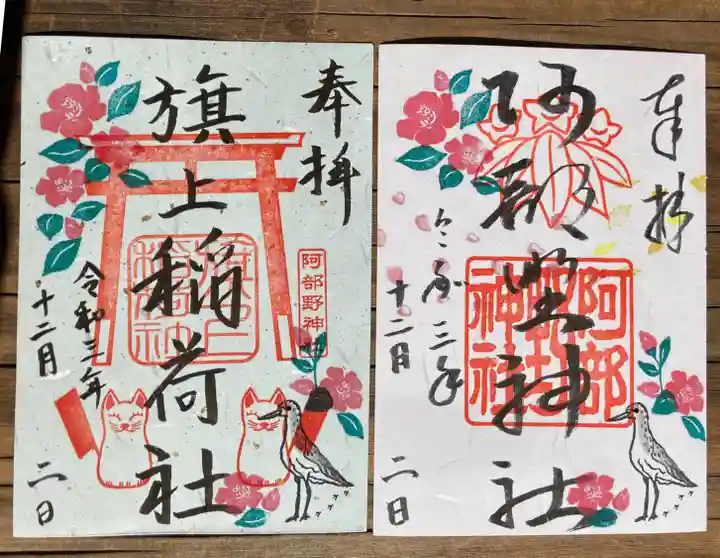 奉拝
旗上稲荷社
阿部野神社
令和三年
十二月
二日
奉拝
阿部野神社
阿部野神社
令和三年
十二月
二日